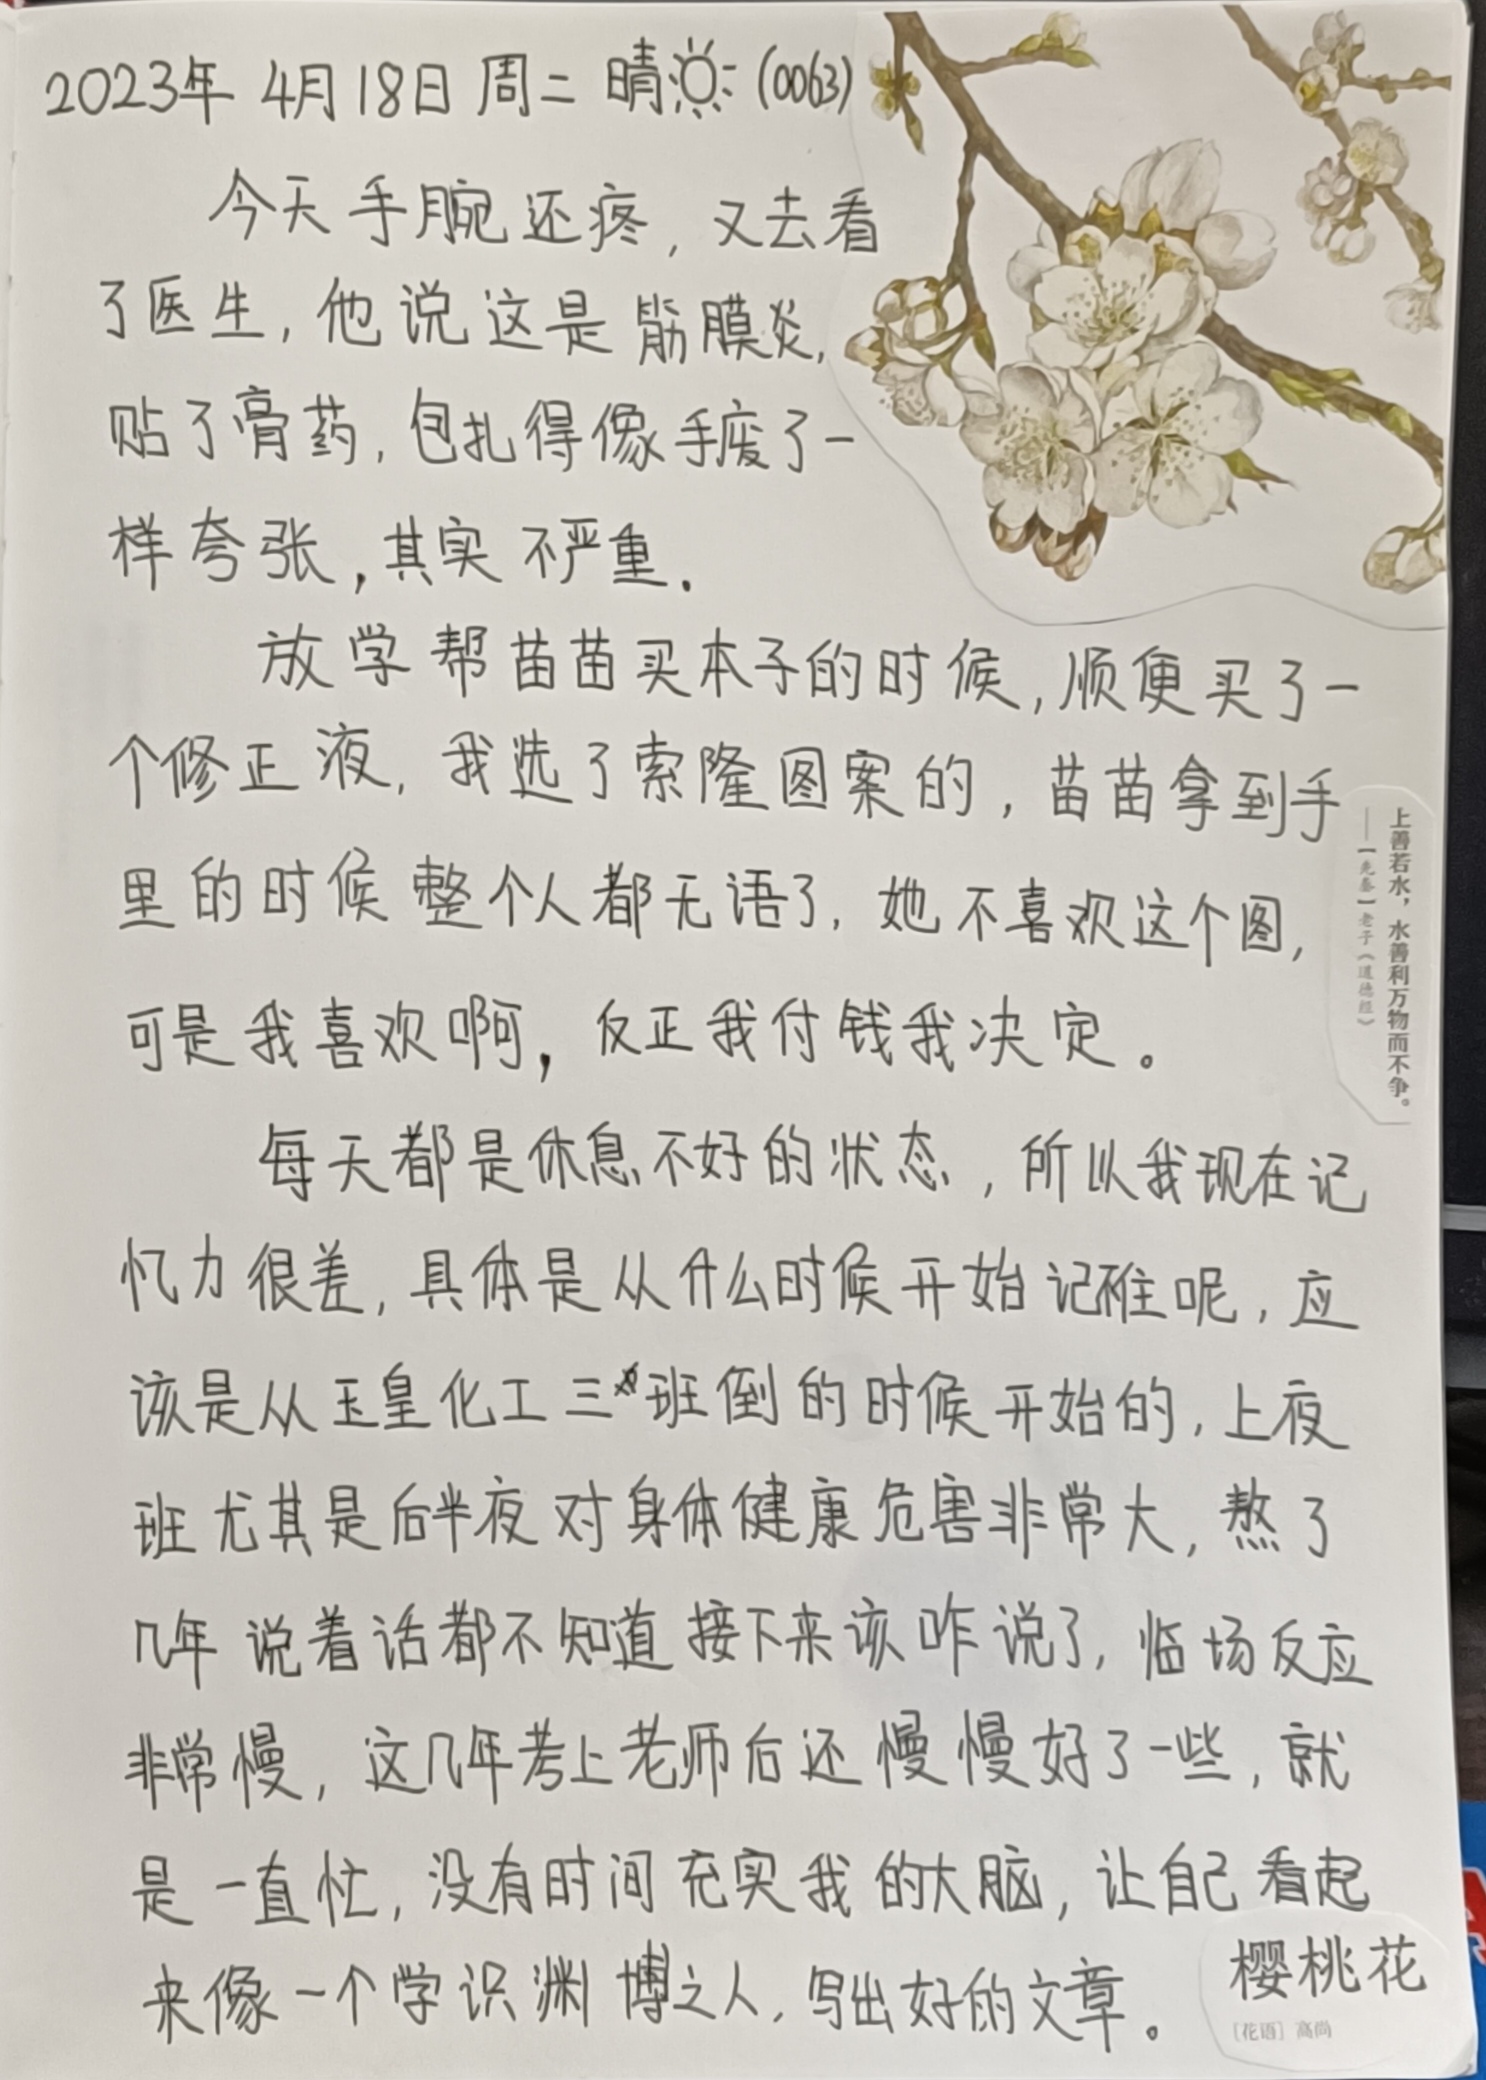 2023年 4月18日 周二 晴 (0063)
今天手腕还疼，又去看
了医生，他说这是筋膜炎，
贴了膏药，包扎得像手废了一
样夸张，其实不严重.
放学帮苗苗买本子的时候，顺便买了一
个修正液，我选了索隆图案的，苗苗拿到手
里的时候整个人都无语了，她不喜欢这个图，
可是我喜欢啊，反正我付钱我决定。
每天都是休息不好的状态，所以我现在记
忆力很差，具体是从什么时候开始记不住呢，应
该是从玉皇化工三班倒的时候开始的，上夜
班尤其是后半夜对身体健康危害非常大，熬了
几年说着话都不知道接下来该咋说了，临场反应
非常慢，这几年考上老师后还慢慢好了一些，就
是一直忙，没有时间充实我的大脑，让自己看起
来像一个学识渊博之人，写出好的文章。
上善若水，水善利万物而不争。
——【先秦】老子《道德经》
樱桃花
［花语］高尚